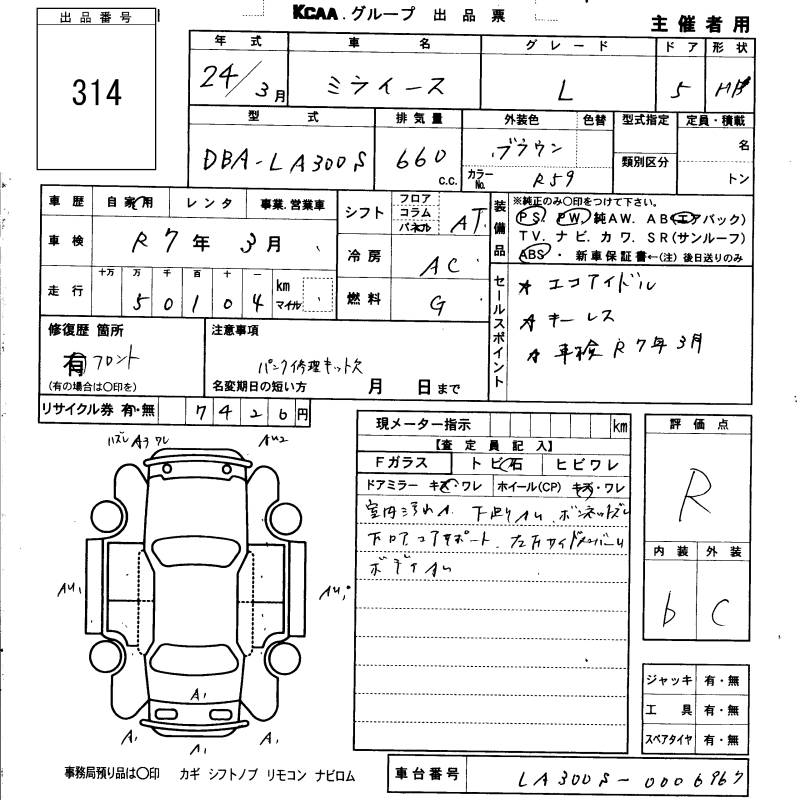 出品番号
314
KCAA.グループ 出品票
主催者用
年式 車名 グレード ドア 形状
24/3月 ミライース L 5 HB
型式 排気量 外装色 色替 型式指定 定員・積載
DBA-LA300S 660 c.c. ブラウン 名
カラーNo. R59 類別区分 トン
車歴 自家用 レンタ 事業.営業車
車検 R7年 3月
走行 十万 万 千 百 十 一 km マイル
5 0 1 0 4
シフト フロア コラム パネル AT
冷房 AC
燃料 G
装備品
※純正のみ○印をつけて下さい。
PS PW 純AW. AB(エアバック)
TV. ナビ. カワ. SR(サンルーフ)
ABS ・ 新車保証書←(注)後日送りのみ
セールスポイント
★ エコアイドル
★ キーレス
★ 車検 R7年3月
修復歴 箇所
有 フロント
(有の場合は○印を)
注意事項
パンク修理キット欠
名変期日の短い方 月 日まで
リサイクル券 有・無 7426円
現メーター指示 km
【査定員記入】
Fガラス トビ石 ヒビワレ
ドアミラー キズ・ワレ ホイール(CP) キズ・ワレ
室内汚れA. 下廻りAU. ボンネットズレ
下ロア.コアサポート.左右サイドメンバーU
ボディAU
ハズレ A3 ワレ
AU2
AU1
AU1
A1
A1
A1
評価点
R
内装 外装
b C
ジャッキ 有・無
工具 有・無
スペアタイヤ 有・無
事務局預り品は○印 カギ シフトノブ リモコン ナビロム
車台番号 LA300S-0006967